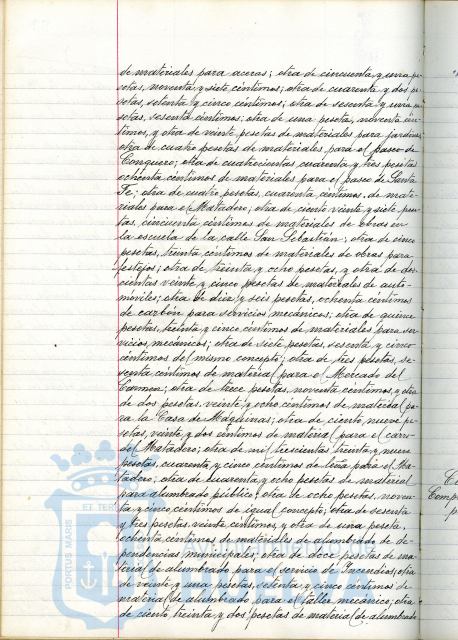 de materiales para aceras; otra de cincuenta y una pe-
setas, noventa y siete céntimos; otra de cuarenta y dos pe-
setas, setenta y cinco céntimos; otra de sesenta y una pe-
setas, sesenta céntimos; otra de una peseta, noventa cén-
timos, y otra de veinte pesetas de materiales para jardines;
otra de cuatro pesetas de materiales para el paseo de
Conquero; otra de cuatrocientas cuarenta y tres pesetas
ochenta céntimos de materiales para el paseo de Santa
Fe; otra de cuatro pesetas, cuarenta céntimos, de mate-
riales para el Matadero; otra de ciento veinte y siete pese-
tas, cincuenta céntimos de materiales de obras en
la escuela de la calle San Sebastián; otra de cinco
pesetas, treinta céntimos de materiales de obras para
festejos; otra de treinta y ocho pesetas, y otra de dos-
cientas veinte y cinco pesetas de materiales de auto-
móviles; otra de diez y seis pesetas, ochenta céntimos
de carbón para servicios mecánicos; otra de quince
pesetas, treinta y cinco céntimos de materiales para ser-
vicios mecánicos; otra de siete pesetas, sesenta y cinco
céntimos del mismo concepto; otra de tres pesetas, se-
senta céntimos de material para el Mercado del
Carmen; otra de trece pesetas, noventa céntimos, y otra
de dos pesetas, veinte y ocho céntimos de material pa-
ra la Casa de Máquinas; otra de ciento nueve pe-
setas, veinte y dos céntimos de material para el carro
del Matadero; otra de mil trescientas treinta y nueve
pesetas, cuarenta y cinco céntimos de leña para el Ma-
tadero; otra de cuarenta y ocho pesetas de material
para alumbrado público; otra de ocho pesetas, noven-
ta y cinco céntimos de igual concepto; otra de sesenta
y tres pesetas veinte céntimos, y otra de una peseta,
ochenta céntimos de materiales de alumbrado de de-
pendencias municipales; otra de doce pesetas de ma-
terial de alumbrado para el servicio de Incendios; otra
de veinte y una pesetas, setenta y cinco céntimos de
material de alumbrado para el taller mecánico; otra
de ciento treinta y dos pesetas de material de alumbrado
PORTUS MARIS
ET TERR